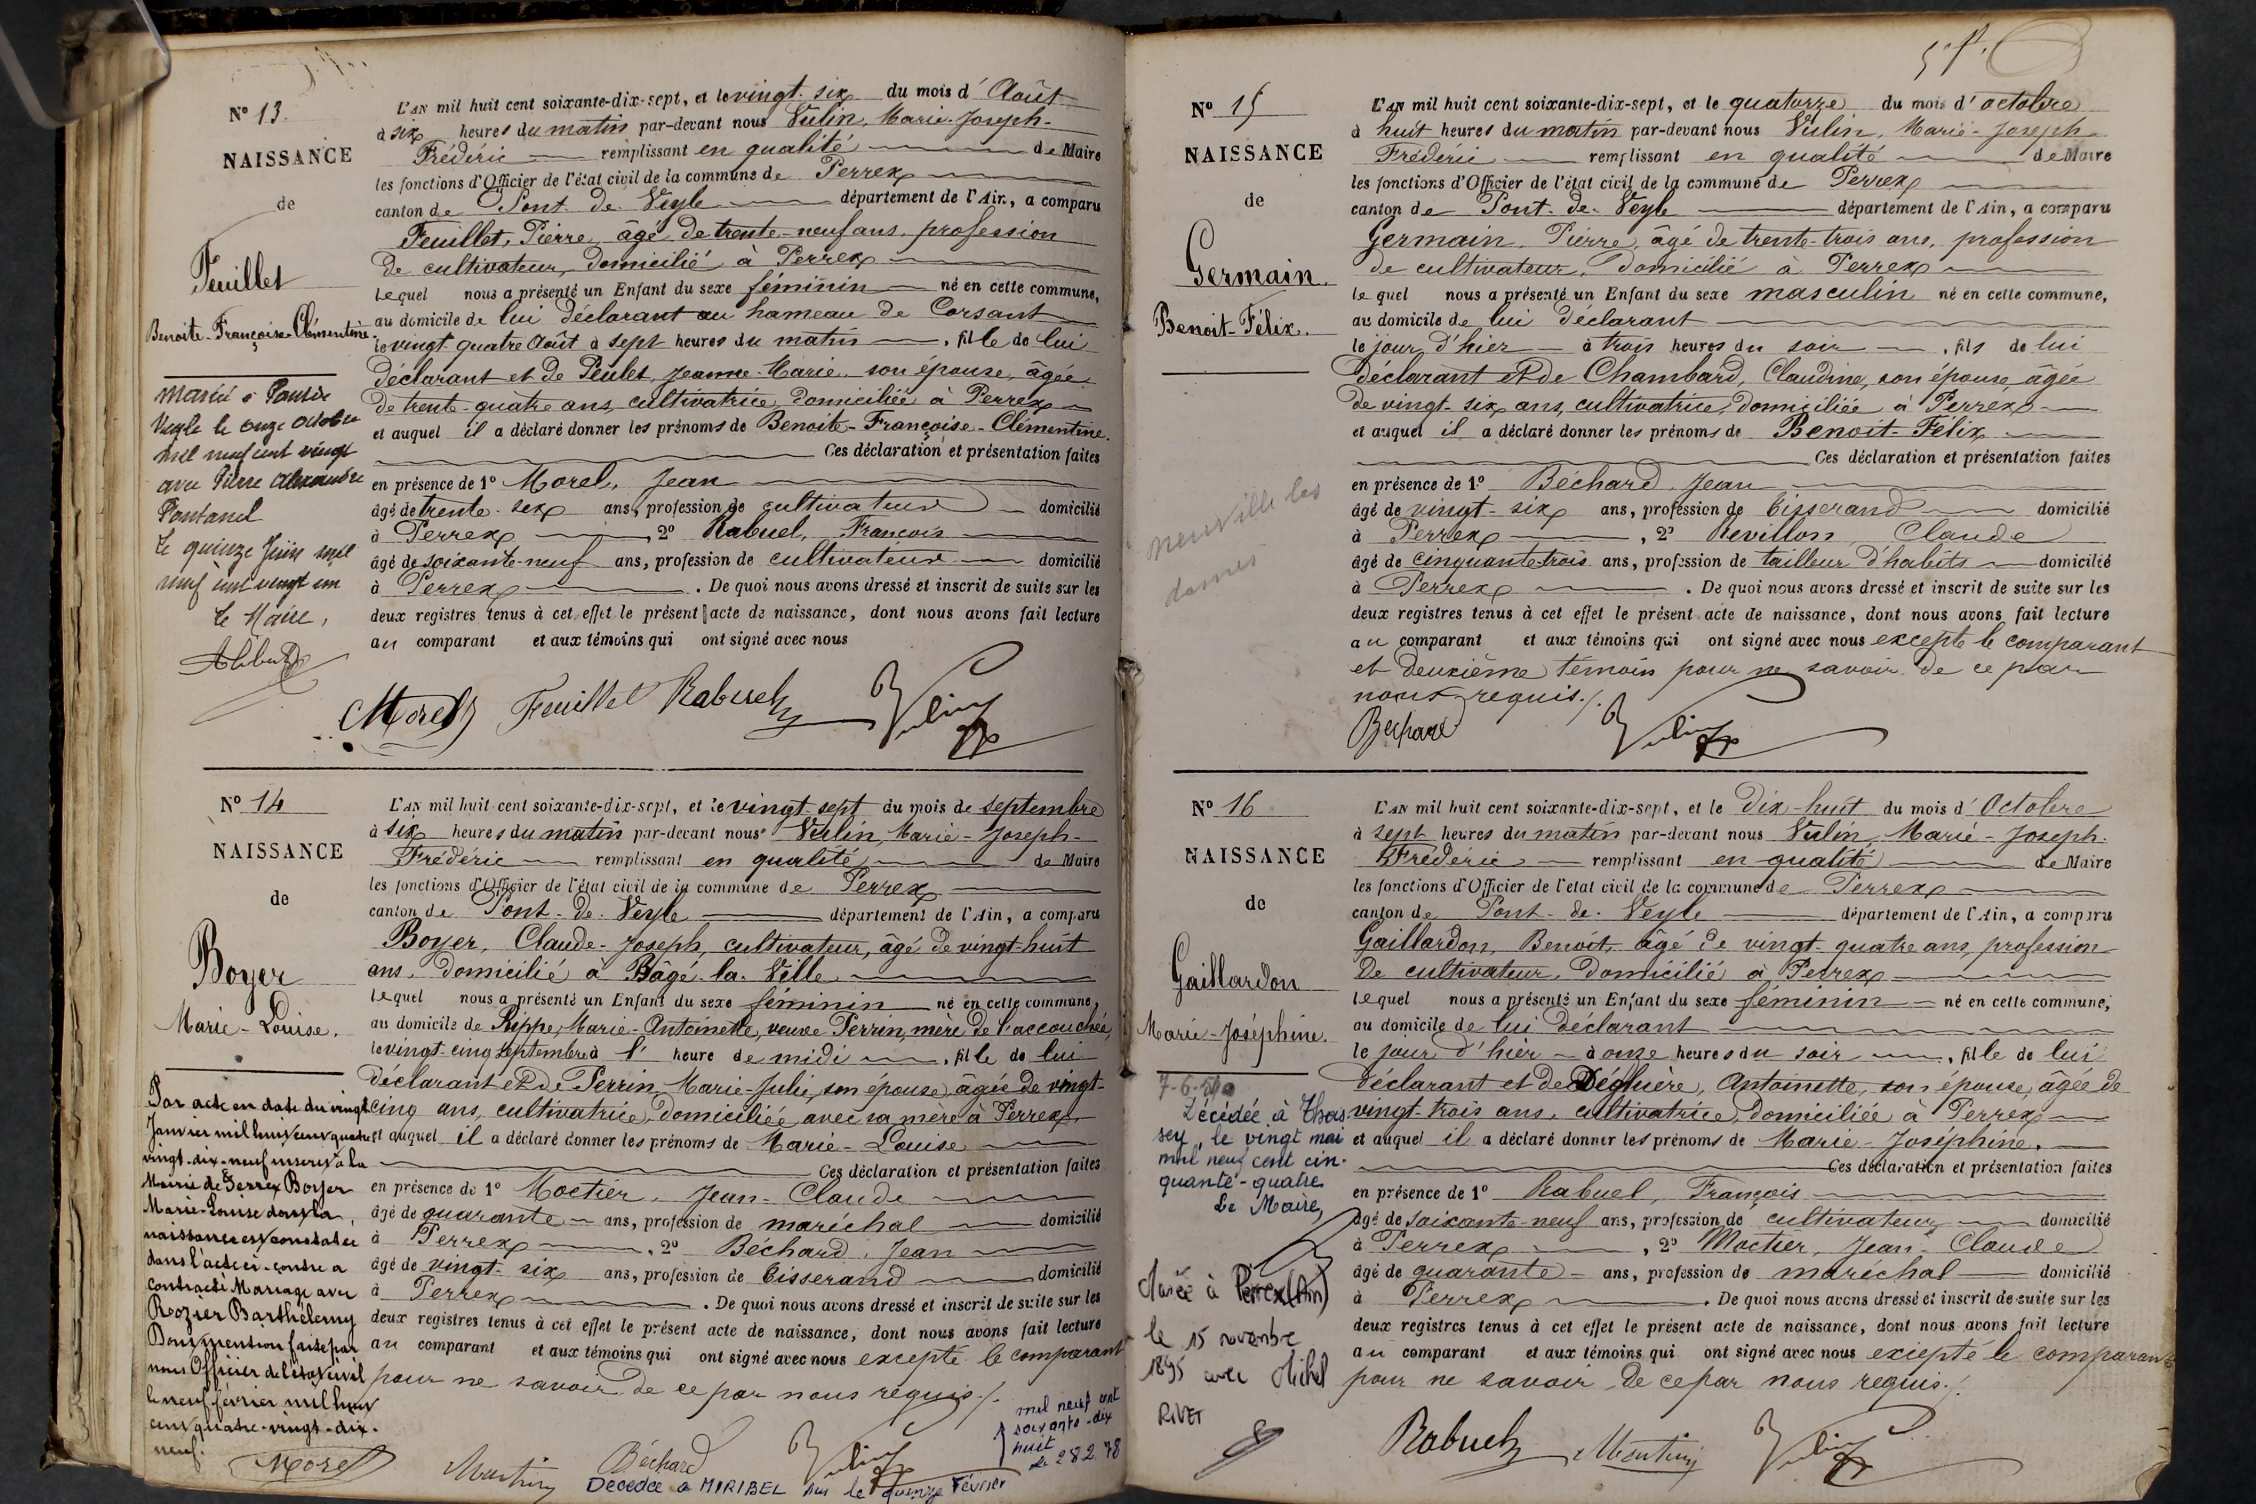 N° 13.
NAISSANCE
de
Feuillet
Benoite-Françoise-Clémentine.
Marié à Pont de
Veyle le onze octobre
mil neuf cent vingt
avec Pierre Alexandre
Pontanel
Le quinze Juin mil
neuf cent vingt un
Le Maire,
L'AN mil huit cent soixante-dix-sept, et le vingt-six du mois d'Août
à six heures du matin par-devant nous Vulin, Marie-Joseph-
Frédéric remplissant en qualité de Maire
les fonctions d'Officier de l'état civil de la commune de Perrex
canton de Pont-de-Veyle département de l'Ain, a comparu
Feuillet, Pierre, âgé de trente-neuf ans, profession
de cultivateur, domicilié à Perrex
lequel nous a présenté un Enfant du sexe féminin né en cette commune,
au domicile de lui déclarant au hameau de Corsant
le vingt-quatre Août à sept heures du matin, fille de lui
déclarant et de Peulet, Jeanne-Marie, son épouse, âgée
de trente-quatre ans, cultivatrice, domiciliée à Perrex
et auquel il a déclaré donner les prénoms de Benoite-Françoise-Clémentine.
Ces déclaration et présentation faites
en présence de 1° Morel, Jean
âgé de trente-six ans, profession de cultivateur domicilié
à Perrex, 2° Rabuel, François
âgé de soixante-neuf ans, profession de cultivateur domicilié
à Perrex. De quoi nous avons dressé et inscrit de suite sur les
deux registres tenus à cet effet le présent acte de naissance, dont nous avons fait lecture
au comparant et aux témoins qui ont signé avec nous
Morel Feuillet Rabuel Vulin
N° 14
NAISSANCE
de
Boyer
Marie-Louise.
Par acte en date du vingt
Janvier mil huit cent quatre
vingt-dix-neuf inscrit à la
Mairie de Perrex Boyer
Marie-Louise dont la
naissance est constatée
dans l'acte ci-contre a
contracté Mariage avec
Rozier Barthélemy
Dont mention faite par
nous Officier de l'état civil
le neuf février mil huit
cent quatre-vingt-dix-
neuf.
Morel
L'AN mil huit cent soixante-dix-sept, et le vingt-sept du mois de septembre
à six heures du matin par-devant nous Vulin, Marie-Joseph-
Frédéric remplissant en qualité de Maire
les fonctions d'Officier de l'état civil de la commune de Perrex
canton de Pont-de-Veyle département de l'Ain, a comparu
Boyer, Claude-Joseph, cultivateur, âgé de vingt-huit
ans, domicilié à Bâgé-la-Ville
lequel nous a présenté un Enfant du sexe féminin né en cette commune,
au domicile de Rippe, Marie-Antoinette, veuve Perrin, mère de l'accouchée,
le vingt-cinq septembre à l'heure de midi, fille de lui
déclarant et de Perrin, Marie-Julie, son épouse, âgée de vingt-
cinq ans, cultivatrice, domiciliée avec sa mère à Perrex
et auquel il a déclaré donner les prénoms de Marie-Louise
Ces déclaration et présentation faites
en présence de 1° Moctier, Jean-Claude
âgé de quarante ans, profession de maréchal domicilié
à Perrex, 2° Béchard, Jean
âgé de vingt-six ans, profession de tisserand domicilié
à Perrex. De quoi nous avons dressé et inscrit de suite sur les
deux registres tenus à cet effet le présent acte de naissance, dont nous avons fait lecture
au comparant et aux témoins qui ont signé avec nous excepté le comparant
pour ne savoir de ce par nous requis./.
Béchard Vulin
Décédée à MIRIBEL Ain le quinze Février
mil neuf cent
soixante-dix
huit
Le 28 2 78
N° 15
NAISSANCE
de
Germain.
Benoit-Félix.
neuville les
dames
L'AN mil huit cent soixante-dix-sept, et le quatorze du mois d'octobre
à huit heures du matin par-devant nous Vulin, Marie-Joseph
Frédéric remplissant en qualité de Maire
les fonctions d'Officier de l'état civil de la commune de Perrex
canton de Pont-de-Veyle département de l'Ain, a comparu
Germain, Pierre, âgé de trente-trois ans, profession
de cultivateur, domicilié à Perrex
lequel nous a présenté un Enfant du sexe masculin né en cette commune,
au domicile de lui déclarant
le jour d'hier à trois heures du soir, fils de lui
déclarant et de Chambard, Claudine, son épouse, âgée
de vingt-six ans, cultivatrice, domiciliée à Perrex
et auquel il a déclaré donner les prénoms de Benoit-Félix
Ces déclaration et présentation faites
en présence de 1° Béchard, Jean
âgé de vingt-six ans, profession de tisserand domicilié
à Perrex, 2° Revillon, Claude
âgé de cinquante-trois ans, profession de tailleur d'habits domicilié
à Perrex. De quoi nous avons dressé et inscrit de suite sur les
deux registres tenus à cet effet le présent acte de naissance, dont nous avons fait lecture
au comparant et aux témoins qui ont signé avec nous excepté le comparant
et deuxième témoin pour ne savoir de ce par
nous requis./.
Bechard Vulin
N° 16
NAISSANCE
de
Gaillardon
Marie-Joséphine.
Décédée à Thois
sey, le vingt mai
mil neuf cent cin-
quante-quatre
Le Maire,
Mariée à Perrex (Ain)
le 15 novembre
1895 avec Michel
RIVET
L'AN mil huit cent soixante-dix-sept, et le dix-huit du mois d'Octobre
à sept heures du matin par-devant nous Vulin, Marie-Joseph-
Frédéric remplissant en qualité de Maire
les fonctions d'Officier de l'état civil de la commune de Perrex
canton de Pont-de-Veyle département de l'Ain, a comparu
Gaillardon, Benoit, âgé de vingt-quatre ans, profession
de cultivateur, domicilié à Perrex
lequel nous a présenté un Enfant du sexe féminin né en cette commune,
au domicile de lui déclarant
le jour d'hier à onze heures du soir, fille de lui
déclarant et de Degluère, Antoinette, son épouse, âgée de
vingt-trois ans, cultivatrice, domiciliée à Perrex
et auquel il a déclaré donner les prénoms de Marie-Joséphine.
Ces déclaration et présentation faites
en présence de 1° Rabuel, François
âgé de soixante-neuf ans, profession de cultivateur domicilié
à Perrex, 2° Moctier, Jean-Claude
âgé de quarante ans, profession de maréchal domicilié
à Perrex. De quoi nous avons dressé et inscrit de suite sur les
deux registres tenus à cet effet le présent acte de naissance, dont nous avons fait lecture
au comparant et aux témoins qui ont signé avec nous excepté le comparant
pour ne savoir de ce par nous requis./.
Rabuel Vulin